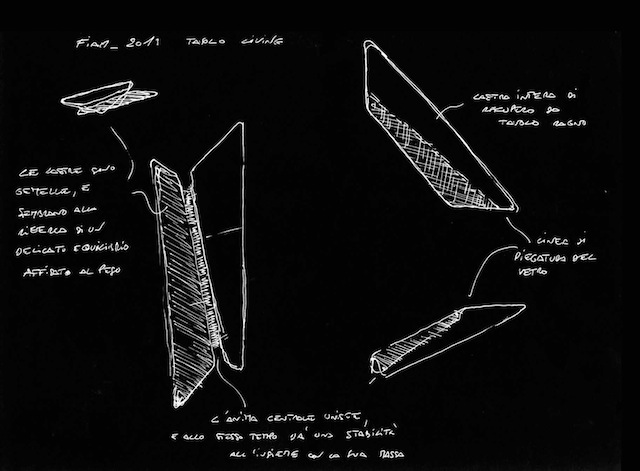 FIAM_ 2019 TAVOLO LIVING
LASTRA INTERA DI
RECUPERO DA
TAVOLO RAGNO
LE LASTRE SONO
GEMELLE, E
SEMBRANO ALLA
RICERCA DI UN
DELICATO EQUILIBRIO
AFFIDATO AL PESO
LINEA DI
PIEGATURA DEL
VETRO
L'ANIMA CENTRALE UNISCE,
E ALLO STESSO TEMPO DA' UNA STABILITÀ
ALL'INSIEME CON LA SUA MASSA